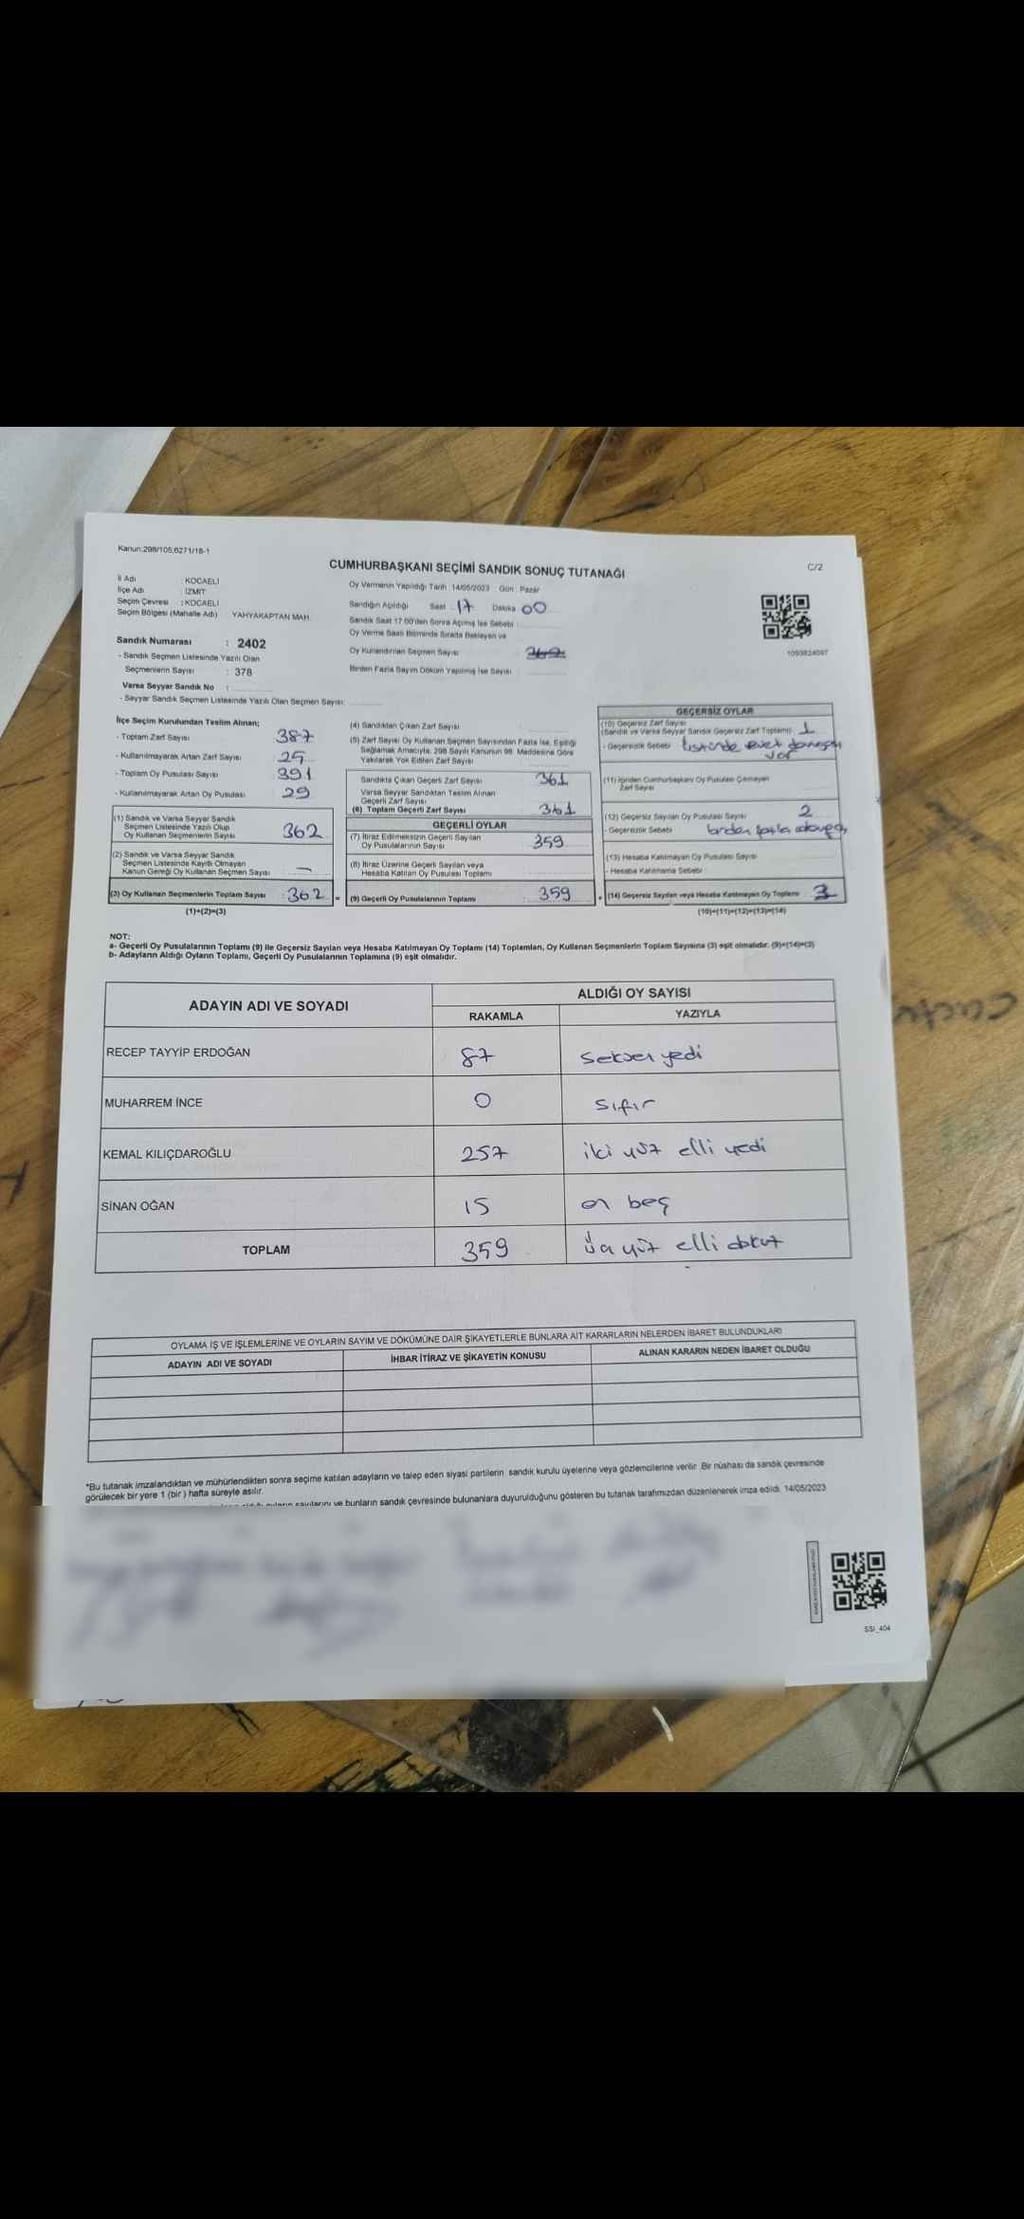 Kanun:298/105,6271/18-1
CUMHURBAŞKANI SEÇİMİ SANDIK SONUÇ TUTANAĞI
C/2
İl Adı : KOCAELİ
İlçe Adı : İZMİT
Seçim Çevresi : KOCAELİ
Seçim Bölgesi (Mahalle Adı) YAHYAKAPTAN MAH.
Oy Vermenin Yapıldığı Tarih 14/05/2023 Gün: Pazar
Sandığın Açıldığı Saat 17 Dakika 00
Sandık Saat 17:00'den Sonra Açılmış İse Sebebi
Oy Verme Saati Bitiminde Sırada Bekleyen ve
Oy Kullandırılan Seçmen Sayısı 362
Birden Fazla Sayım Döküm Yapılmış İse Sayısı
1093824097
Sandık Numarası : 2402
- Sandık Seçmen Listesinde Yazılı Olan
Seçmenlerin Sayısı : 378
Varsa Seyyar Sandık No :
- Seyyar Sandık Seçmen Listesinde Yazılı Olan Seçmen Sayısı:
İlçe Seçim Kurulundan Teslim Alınan;
- Toplam Zarf Sayısı 387
- Kullanılmayarak Artan Zarf Sayısı 25
- Toplam Oy Pusulası Sayısı 391
- Kullanılmayarak Artan Oy Pusulası 29
(1) Sandık ve Varsa Seyyar Sandık
Seçmen Listesinde Yazılı Olup
Oy Kullanan Seçmenlerin Sayısı 362
(2) Sandık ve Varsa Seyyar Sandık
Seçmen Listesinde Kayıtlı Olmayan
Kanun Gereği Oy Kullanan Seçmen Sayısı : —
(3) Oy Kullanan Seçmenlerin Toplam Sayısı : 362
(1)+(2)=(3)
(4) Sandıktan Çıkan Zarf Sayısı
(5) Zarf Sayısı Oy Kullanan Seçmen Sayısından Fazla İse, Eşitliği
Sağlamak Amacıyla, 298 Sayılı Kanunun 98. Maddesine Göre
Yakılarak Yok Edilen Zarf Sayısı
Sandıkta Çıkan Geçerli Zarf Sayısı 361
Varsa Seyyar Sandıktan Teslim Alınan
Geçerli Zarf Sayısı
(6) Toplam Geçerli Zarf Sayısı 361
GEÇERLİ OYLAR
(7) İtiraz Edilmeksizin Geçerli Sayılan
Oy Pusulalarının Sayısı 359
(8) İtiraz Üzerine Geçerli Sayılan veya
Hesaba Katılan Oy Pusulası Toplamı
= (9) Geçerli Oy Pusulalarının Toplamı : 359
GEÇERSİZ OYLAR
(10) Geçersiz Zarf Sayısı
(Sandık ve Varsa Seyyar Sandık Geçersiz Zarf Toplamı) 1
- Geçersizlik Sebebi Üstünde evet damgası
var
(11) İçinden Cumhurbaşkanı Oy Pusulası Çıkmayan
Zarf Sayısı
(12) Geçersiz Sayılan Oy Pusulası Sayısı 2
- Geçersizlik Sebebi birden fazla
(13) Hesaba Katılmayan Oy Pusulası Sayısı
- Hesaba Katılmama Sebebi
+ (14) Geçersiz Sayılan veya Hesaba Katılmayan Oy Toplamı 3
(10)+(11)+(12)+(13)=(14)
NOT:
a- Geçerli Oy Pusulalarının Toplamı (9) ile Geçersiz Sayılan veya Hesaba Katılmayan Oy Toplamı (14) Toplamları, Oy Kullanan Seçmenlerin Toplam Sayısına (3) eşit olmalıdır. (9)+(14)=(3)
b- Adayların Aldığı Oyların Toplamı, Geçerli Oy Pusulalarının Toplamına (9) eşit olmalıdır.
ADAYIN ADI VE SOYADI
ALDIĞI OY SAYISI
RAKAMLA YAZIYLA
RECEP TAYYİP ERDOĞAN 87 Seksen yedi
MUHARREM İNCE 0 Sıfır
KEMAL KILIÇDAROĞLU 257 iki yüz elli yedi
SİNAN OĞAN 15 on beş
TOPLAM 359 üç yüz elli dokuz
OYLAMA İŞ VE İŞLEMLERİNE VE OYLARIN SAYIM VE DÖKÜMÜNE DAİR ŞİKAYETLERLE BUNLARA AİT KARARLARIN NELERDEN İBARET BULUNDUKLARI
ADAYIN ADI VE SOYADI İHBAR İTİRAZ VE ŞİKAYETİN KONUSU ALINAN KARARIN NEDEN İBARET OLDUĞU
*Bu tutanak imzalandıktan ve mühürlendikten sonra seçime katılan adayların ve talep eden siyasi partilerin sandık kurulu üyelerine veya gözlemcilerine verilir. Bir nüshası da sandık çevresinde
görülecek bir yere 1 (bir) hafta süreyle asılır.
ve bunların sandık çevresinde bulunanlara duyurulduğunu gösteren bu tutanak tarafımızdan düzenlenerek imza edildi. 14/05/2023
SSI_404